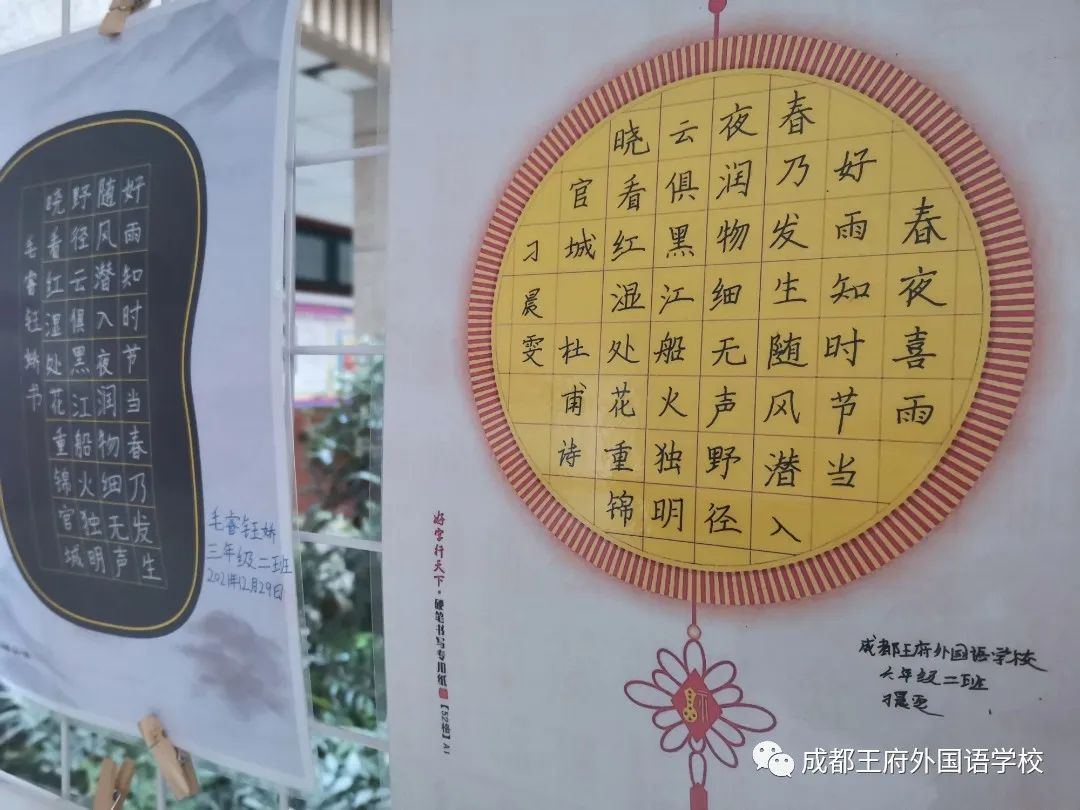 好雨知时节当春乃发生
随风潜入夜润物细无声
野径云俱黑江船火独明
晓看红湿处花重锦官城
毛睿钰娇书
毛睿钰娇
三年级二班
2021年12月29日
春夜喜雨
好雨知时节当
春乃发生随风潜入
夜润物细无声野径
云俱黑江船火独明
晓看红湿处花重锦
官城 杜甫诗
刁晨雯
好字行天下·硬笔书写专用纸【52格】A1
成都王府外国语学校
六年级二班
刁晨雯
成都王府外国语学校